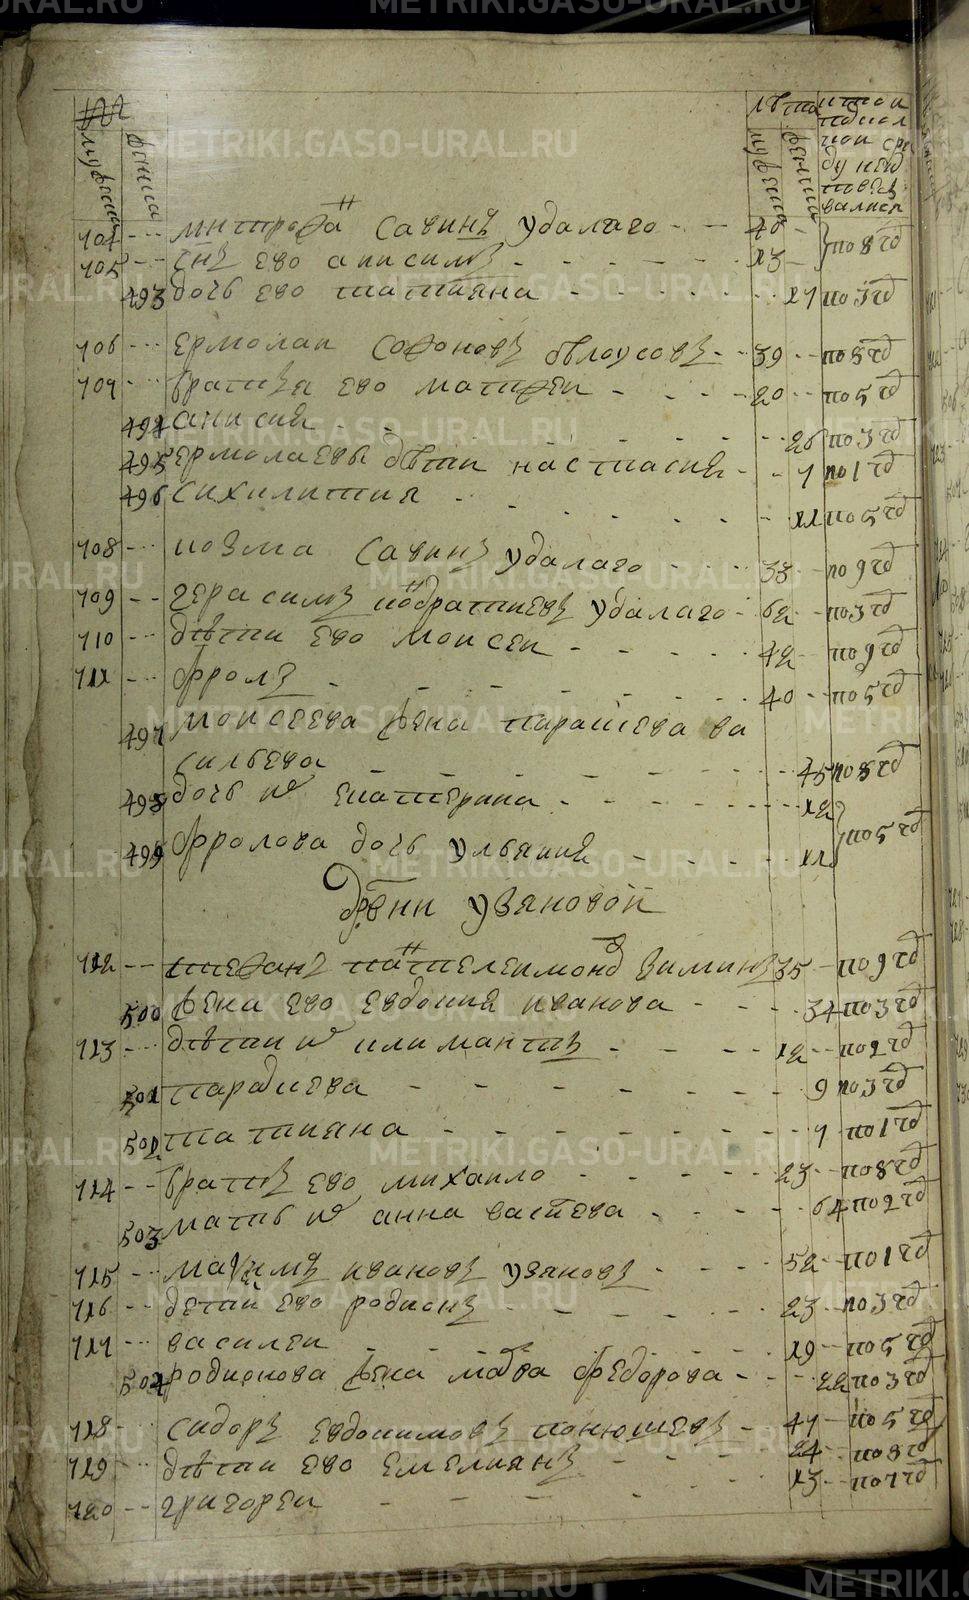 METRIKI.GASO-URAL.RU
лѣта
мужеска
женска
704 --- митрофа Савинъ Удалаго - - - 40 - по 8 гд
705 --- снъ ево анисимъ - - - 13 -
493 дочь ево татияна - - - 17 по 3 гд
706 --- ермолаи Софоновъ бѣлоусовъ - - 39 - - по 5 гд
707 --- братья ево матфеи - - - 20 - - по 5 гд
494 анисия - - - 26 по 3 гд
495 ермолаевы дѣти настасия - - 7 по 1 гд
496 Сихилития - - - 11 по 5 гд
708 --- козма Савинъ удалаго - - - 33 - - по 9 гд
709 --- герасимъ кодратиевъ удалаго - 62 - - по 3 гд
710 --- дѣти ево моисеи - - - 42 - по 9 гд
711 --- фролъ - - - 40 - - по 5 гд
497 моисеева жена параскева ва
сильева - - - 45 по 8 гд
498 дочь и екатерина - - - 12
499 фролова дочь ульяния - - - 11 по 5 гд
дрвни узяновои
712 --- степанъ пателеимонов Зиминъ 35 - по 9 гд
500 жена ево евдокия иванова - - - 34 по 3 гд
713 --- дѣти и климантъ - - - 12 - - по 2 гд
501 параскева - - - 9 по 3 гд
502 татияна - - - 7 по 1 гд
714 --- братъ ево михаило - - - 23 - - по 8 гд
503 мать и анна - - - 64 по 2 гд
715 --- маѯимъ ивановъ узяновъ - - - 52 - по 1 гд
716 --- детей ево родионъ - - - 23 - по 3 гд
717 --- василеи - - - 19 - по 5 гд
504 родионова жена федорова - - - 22 по 3 гд
718 --- сидоръ евдокимовъ конюшевъ - 47 - по 5 гд
719 --- дѣти ево емелиянъ - - - 24 - по 8 гд
720 --- григореи - - - 13 - по 7 гд